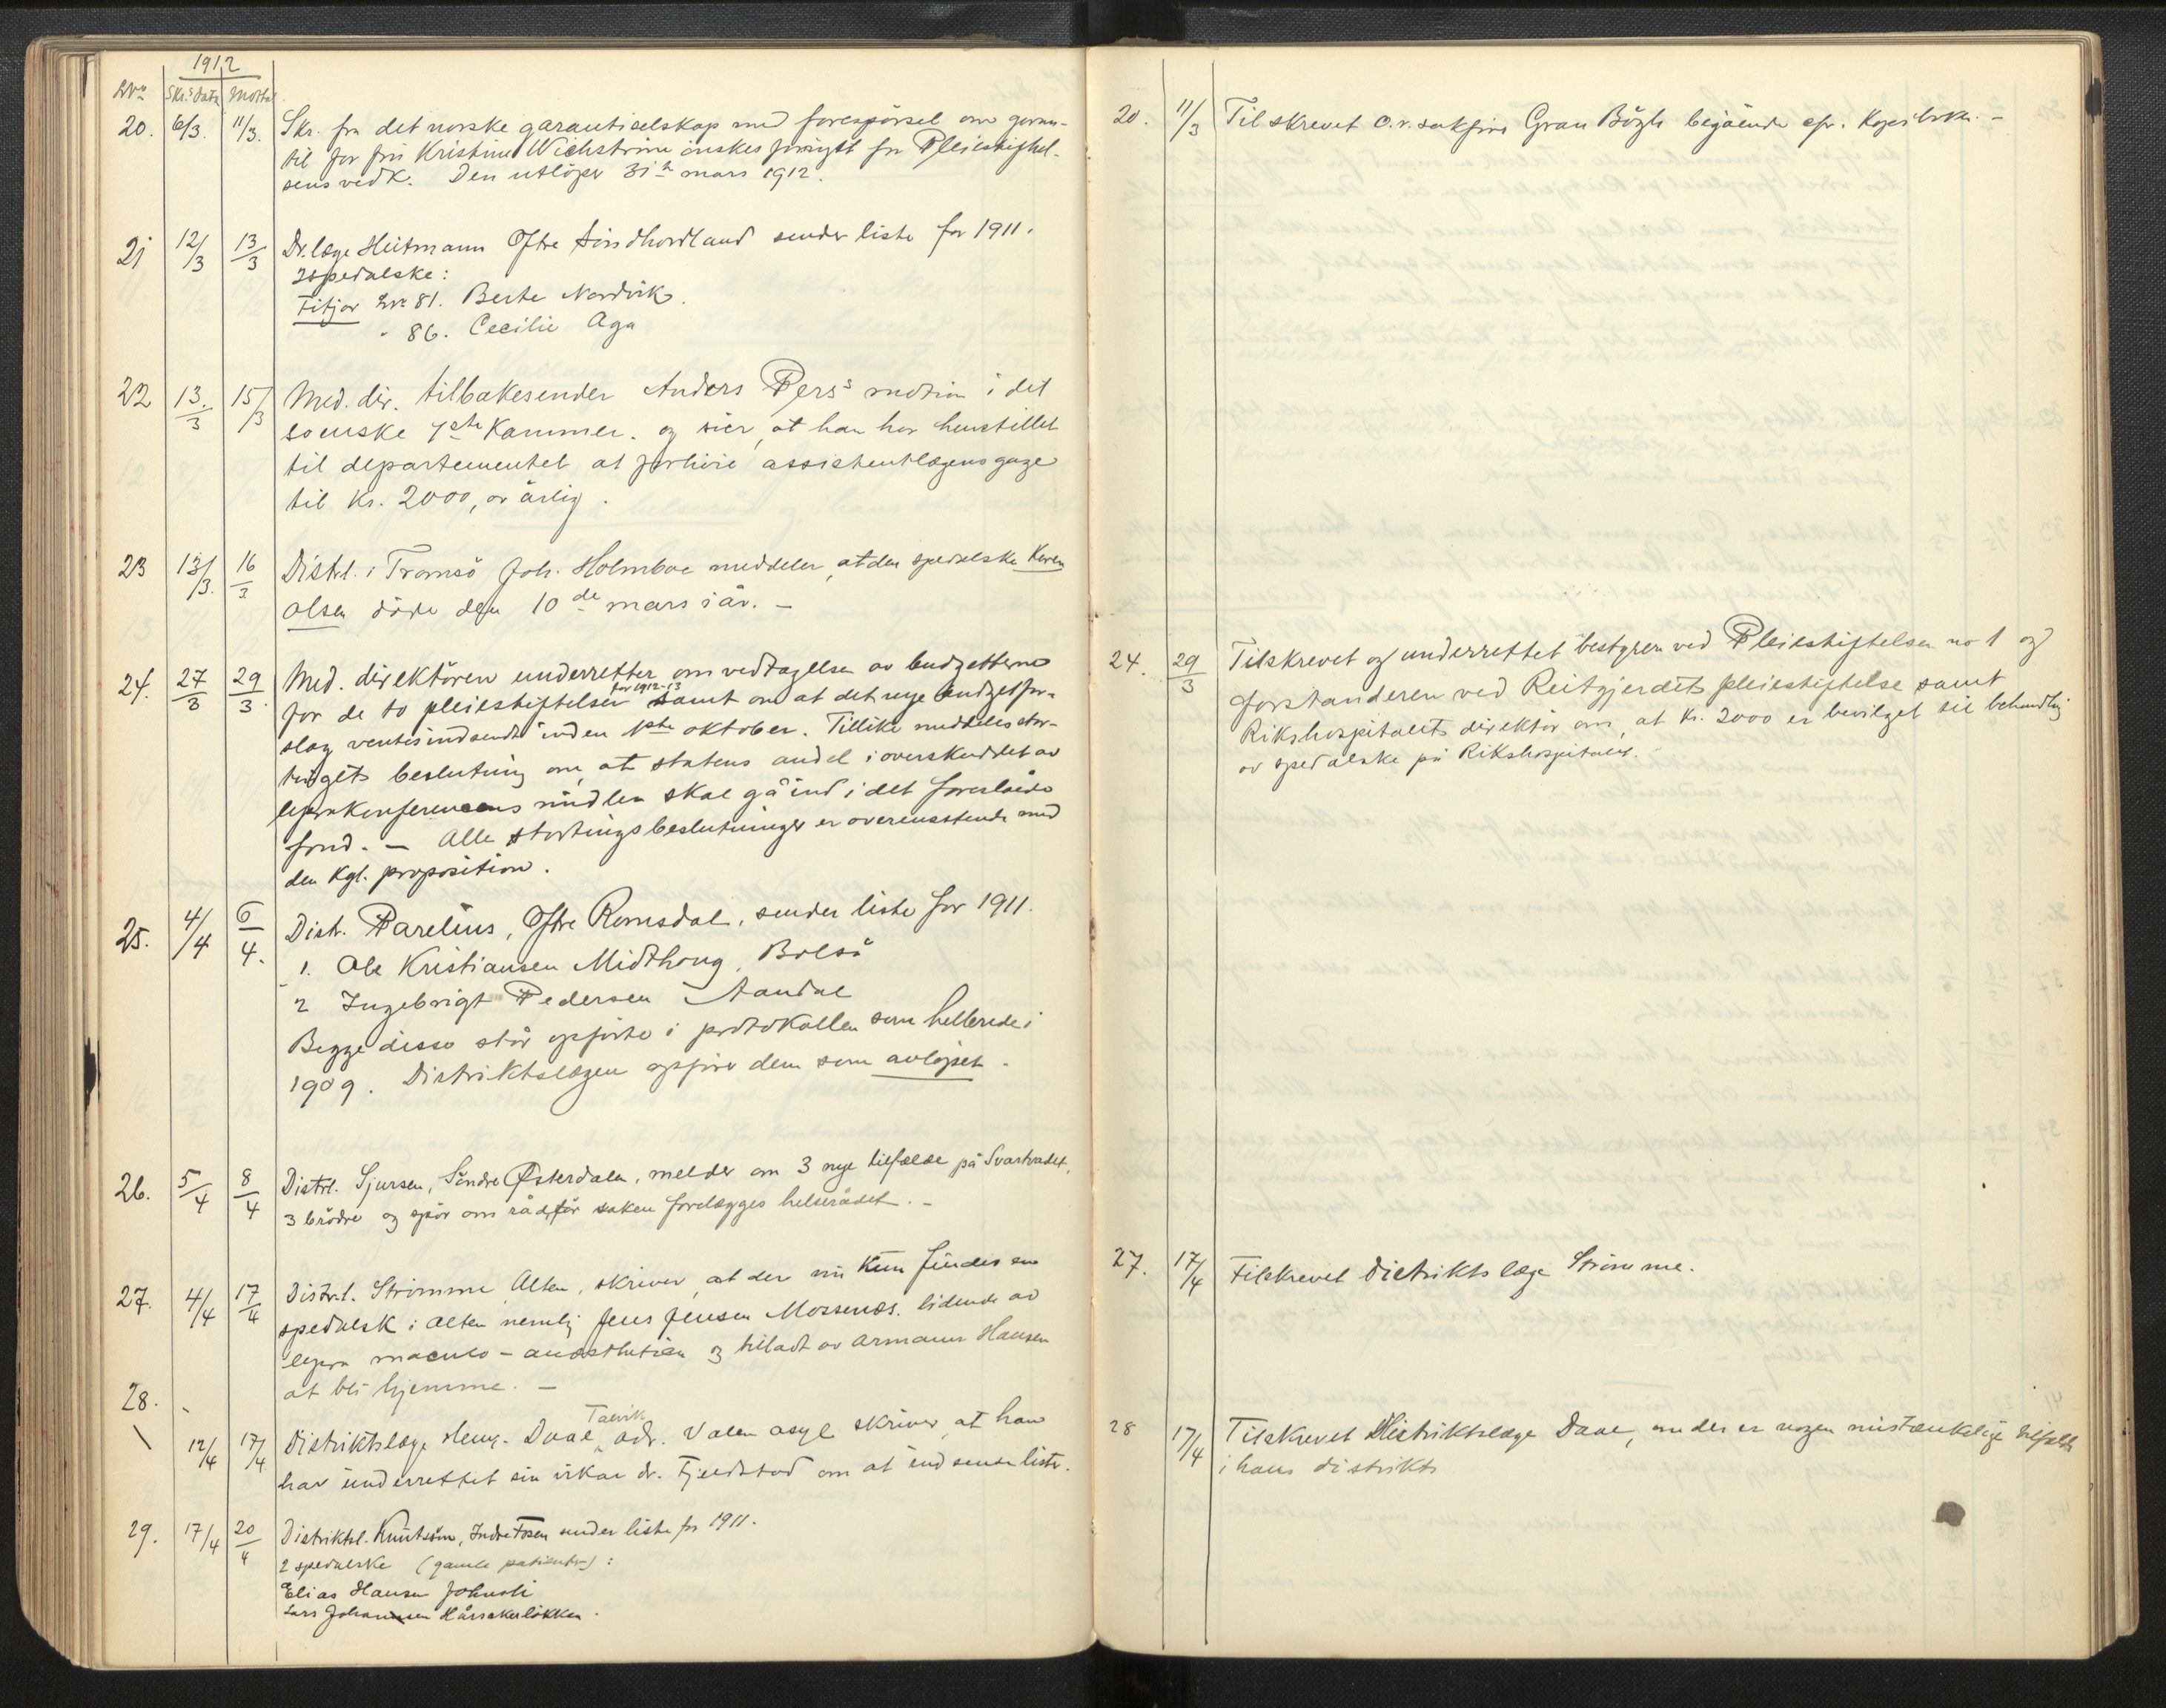 1912
Nro Skr.s dato Mottat
20. 6/3. 11/3. Skr. fra det norske garantiselskap med forespörsel om garan-
til for frü Kristine Wichström önskes fornyet for Pleiestiftel-
sens vedk. Den utlöper 31te mars 1912.
21 12/3 13/3 Dr. læge Heitmann Östre Söndhordland sender liste for 1911.
2 spedalske:
Fitjar Nro 81. Berte Nordvik.
" 86. Cecilie Aga
22 13./3 15/3 Med. dir. tilbakesender Anders Pers's motion i det
svenske 1ste Kammer. og sier, at han har henstillet
til departementet at forhöie assistentlægens gage
til Kr. 2000, or årlig.
23 13/3. 16/3 Distrl. i Tromsö Joh. Holmboe meddeler, at den spedalske Karen
Olsen döde den 10de mars i år. –
24. 27/3 29/3. Med. direktören underretter om vedtagelsen av budgetterne
for de to pleiestiftelser for 1912-13 samt om at det nye budgetfor-
slag ventes indsendt inden 1ste oktober. Tillike meddeles stor-
tingets beslutning om, at statens andel i overskuddet av
leprakonferencens midler skal gå ind i det foreslåede
fond. – Alle stortingsbeslutninger er overensstemde med
den kgl. proposition.
25. 4/4 6/4. Distr. Parelius, Östre Romsdal, sender liste for 1911.
1. Ole Kristiansen Midthaug, Bolsö
2 Ingebrigt Pedersen Aandal
Begge disse står opförte i protokollen som helbrede i
1909. Distriktslægen opförer dem som avlöpet.
26. 5/4 8/4 Distrl. Sjursen, Söndre Østerdalen, melder om 3 nye tilfælde på Svartvadet,
3 brödre og spör om råd, för saken forelægges helserådet. –
27. 4/4 17/4 Distr.l. Strömme Alten, skriver, at der nu kun findes en
spedalsk i Alten nemlig Jens Jensen Mossenæs. lidende av
lepra maculo-anæsthetica og tilladt av Armauer Hansen
at bli hjemme. –
28. 12/4 17/4 Distriktslæge Henr. Daae, Talvik adr. Valen asyl skriver, at han
har underrettet sin vikar dr. Fjeldstad om at indsende liste.
29. 17/4 20/4 Distriktsl. Knutsön, Indre Fosen sender liste for 1911.
2 spedalske (gamle patienter):
Elias Hansen Johnsli
Lars Johannsen Hårsakerlökken.
20. 11/3 Tilskrevet o.r.sakförer Gran Bögh begående efr. Kopibok. –
24. 29/3 Tilskrevet og underrettet bestyren ved Pleiestiftelsen no 1 og
forstanderen ved Reitgjerdets pleiestiftelse samt
Rikshospitalets direktör om, at Kr. 2000 er bevilget til behandlig
av spedalske på Rikshospitalet.
27. 17/4 Tilskrevet distrikts læge Strömme.
28 17/4 Tilskrevet Distriktslæge Daae, om der er nogen mistænkelige tilfælde
i hans distrikt